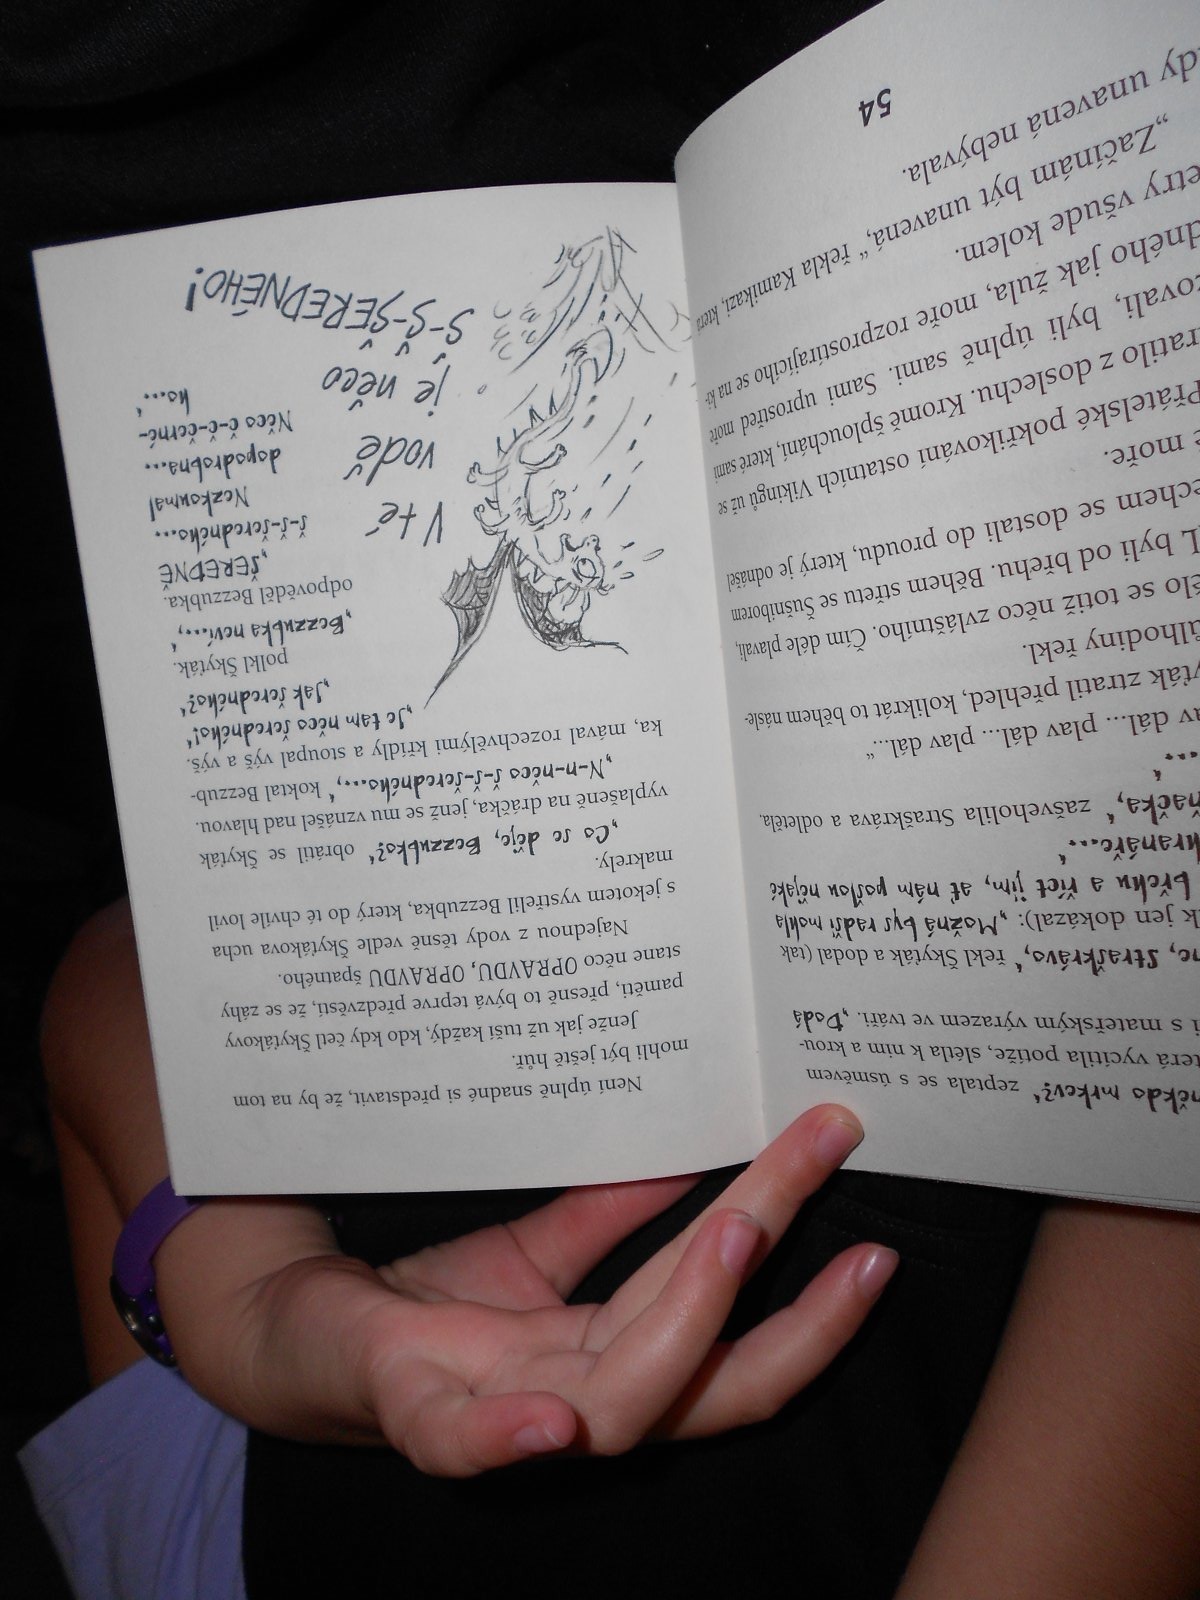 někdo mrkev?‘ zeptala se s úsměvem
terá vycítila potíže, slétla k nim a krou-
i s mateřským výrazem ve tváři. ‚Dodá
Straškrávo,‘ řekl Škyťák a dodal (tak
k jen dokázal): ‚Možná bys radši mohla
břehu a říct jim, ať nám pošlou nějaké
hranáře...‘
zašveholila Straškráva a odletěla.
...‘
av dál... plav dál... plav dál...“
yťák ztratil přehled, kolikrát to během násle-
ůlhodiny řekl.
ělo se totiž něco zvláštního. Čím déle plavali,
l byli od břehu. Během střetu se Sušniborem
echem se dostali do proudu, který je odnášel
é moře.
Přátelské pokřikování ostatních Vikingů už se
ratilo z doslechu. Kromě šplouchání, které sami
ovali, byli úplně sami. Sami uprostřed moře
dného jak žula, moře rozprostírajícího se na ki-
etry všude kolem.
„Začínám být unavená,“ řekla Kamikazi, která
dy unavená nebývala.
54
Není úplně snadné si představit, že by na tom
mohli být ještě hůř.
Jenže jak už tuší každý, kdo kdy četl Škyťákovy
paměti, přesně to bývá teprve předzvěstí, že se záhy
stane něco OPRAVDU, OPRAVDU špatného.
Najednou z vody těsně vedle Škyťákova ucha
s jekotem vystřelil Bezzubka, který do té chvíle lovil
makrely.
‚Co se děje, Bezzubko?‘ obrátil se Škyťák
vyplašeně na dráčka, jenž se mu vznášel nad hlavou.
‚N-n-něco š-š-še-šeredného...,‘ koktal Bezzub-
ka, mával rozechvělými křídly a stoupal výš a výš.
‚Je tam něco šeredného!‘
‚Jak šeredného?‘
polkl Škyťák.
‚Bezzubka neví...,‘
odpověděl Bezzubka.
‚ŠEREDNĚ
š-š-šeredného...
Nezkoumal
dopodrobna...
Něco č-č-černé-
ho...‘
V té
vodě
je něco
Š-Š-ŠEREDNÉHO!